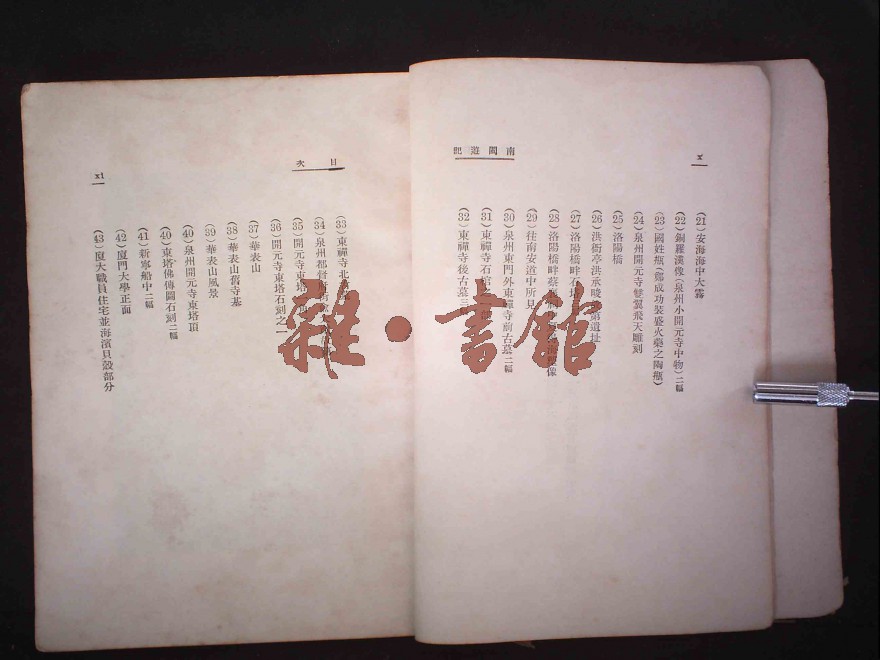 x
南閩遊記
(21) 安海海中大霧
(22) 銅羅漢像(泉州小開元寺中物)二幅
(23) 國姓瓶(鄭成功裝盛火藥之陶瓶)
(24) 泉州開元寺雙翼飛天雕刻
(25) 洛陽橋
(26) 洪衙亭洪承畯 第遺址
(27) 洛陽橋畔石
(28) 洛陽橋畔蔡 像
(29) 往南安道中所見
(30) 泉州東門外東禪寺前古墓二幅
(31) 東禪寺石
(32) 東禪寺後古墓三
目次
xi
(33) 東禪寺北
(34) 泉州都督府
(35) 開元寺東塔
(36) 開元寺東塔石刻之一
(37) 華表山
(38) 華表山舊寺基
(39) 華表山風景
(40) 泉州開元寺東塔頂
(40) 東塔佛傳圖石刻二幅
(41) 新寧船中二幅
(42) 廈門大學正面
(43) 廈大職員住宅並海濱貝殼部分
雜·書館